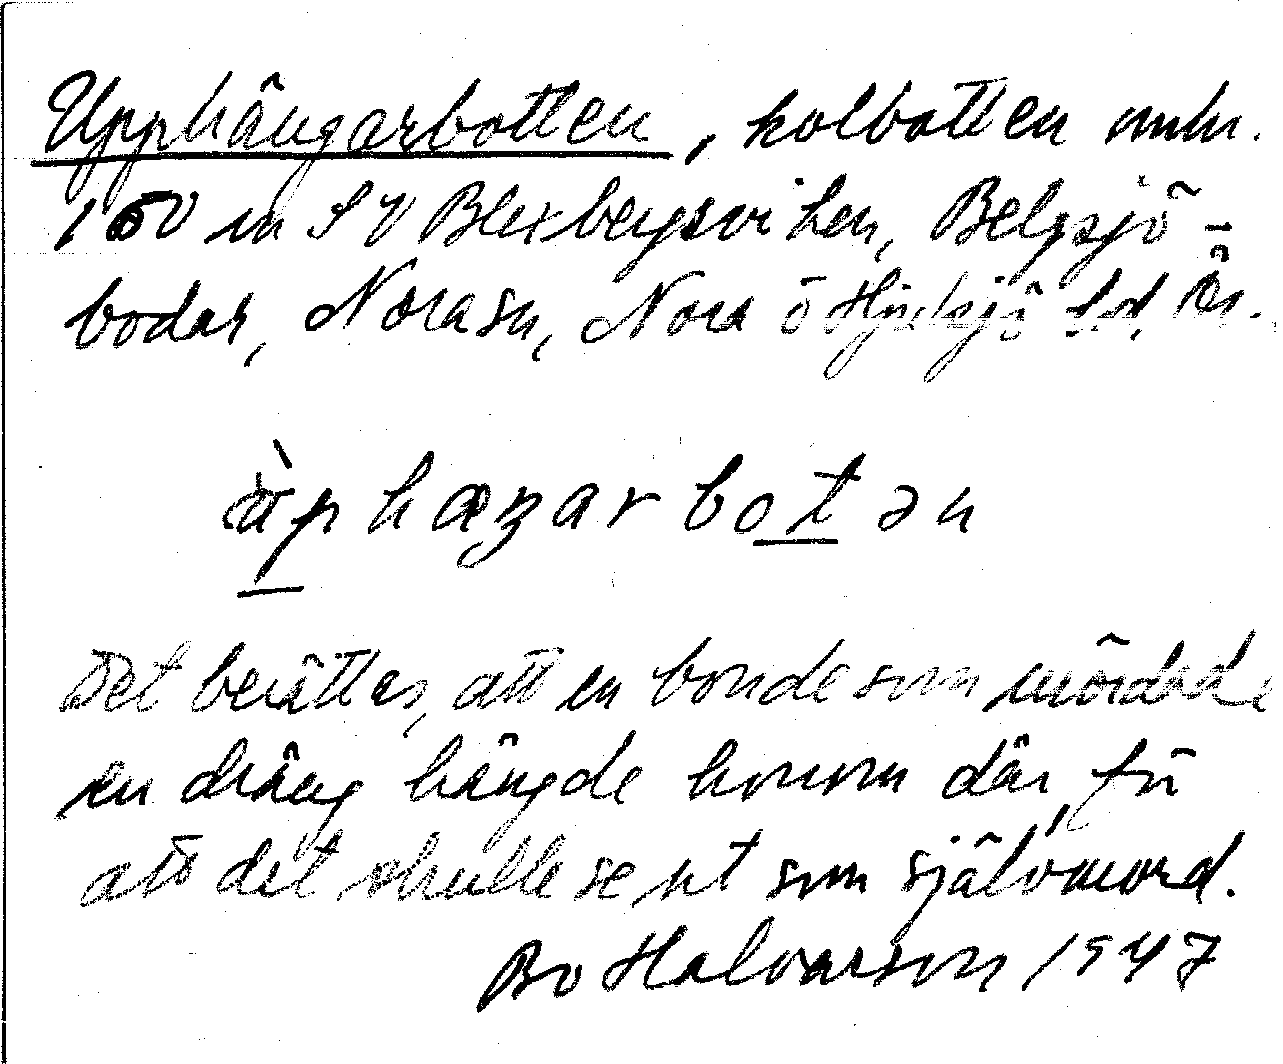 Upphängarbotten, kolbotten omkr.
150 m SV Blexbergsviken, Belgsjö-
bodar, Nora sn, Nora o Hjulsjö hd, Ör.
ùphæŋarbotən
Det berättas, att en bonde som mördade
en dräng hängde honom där, för
att det skulle se ut som självmord.
Bo Halvarson 1947